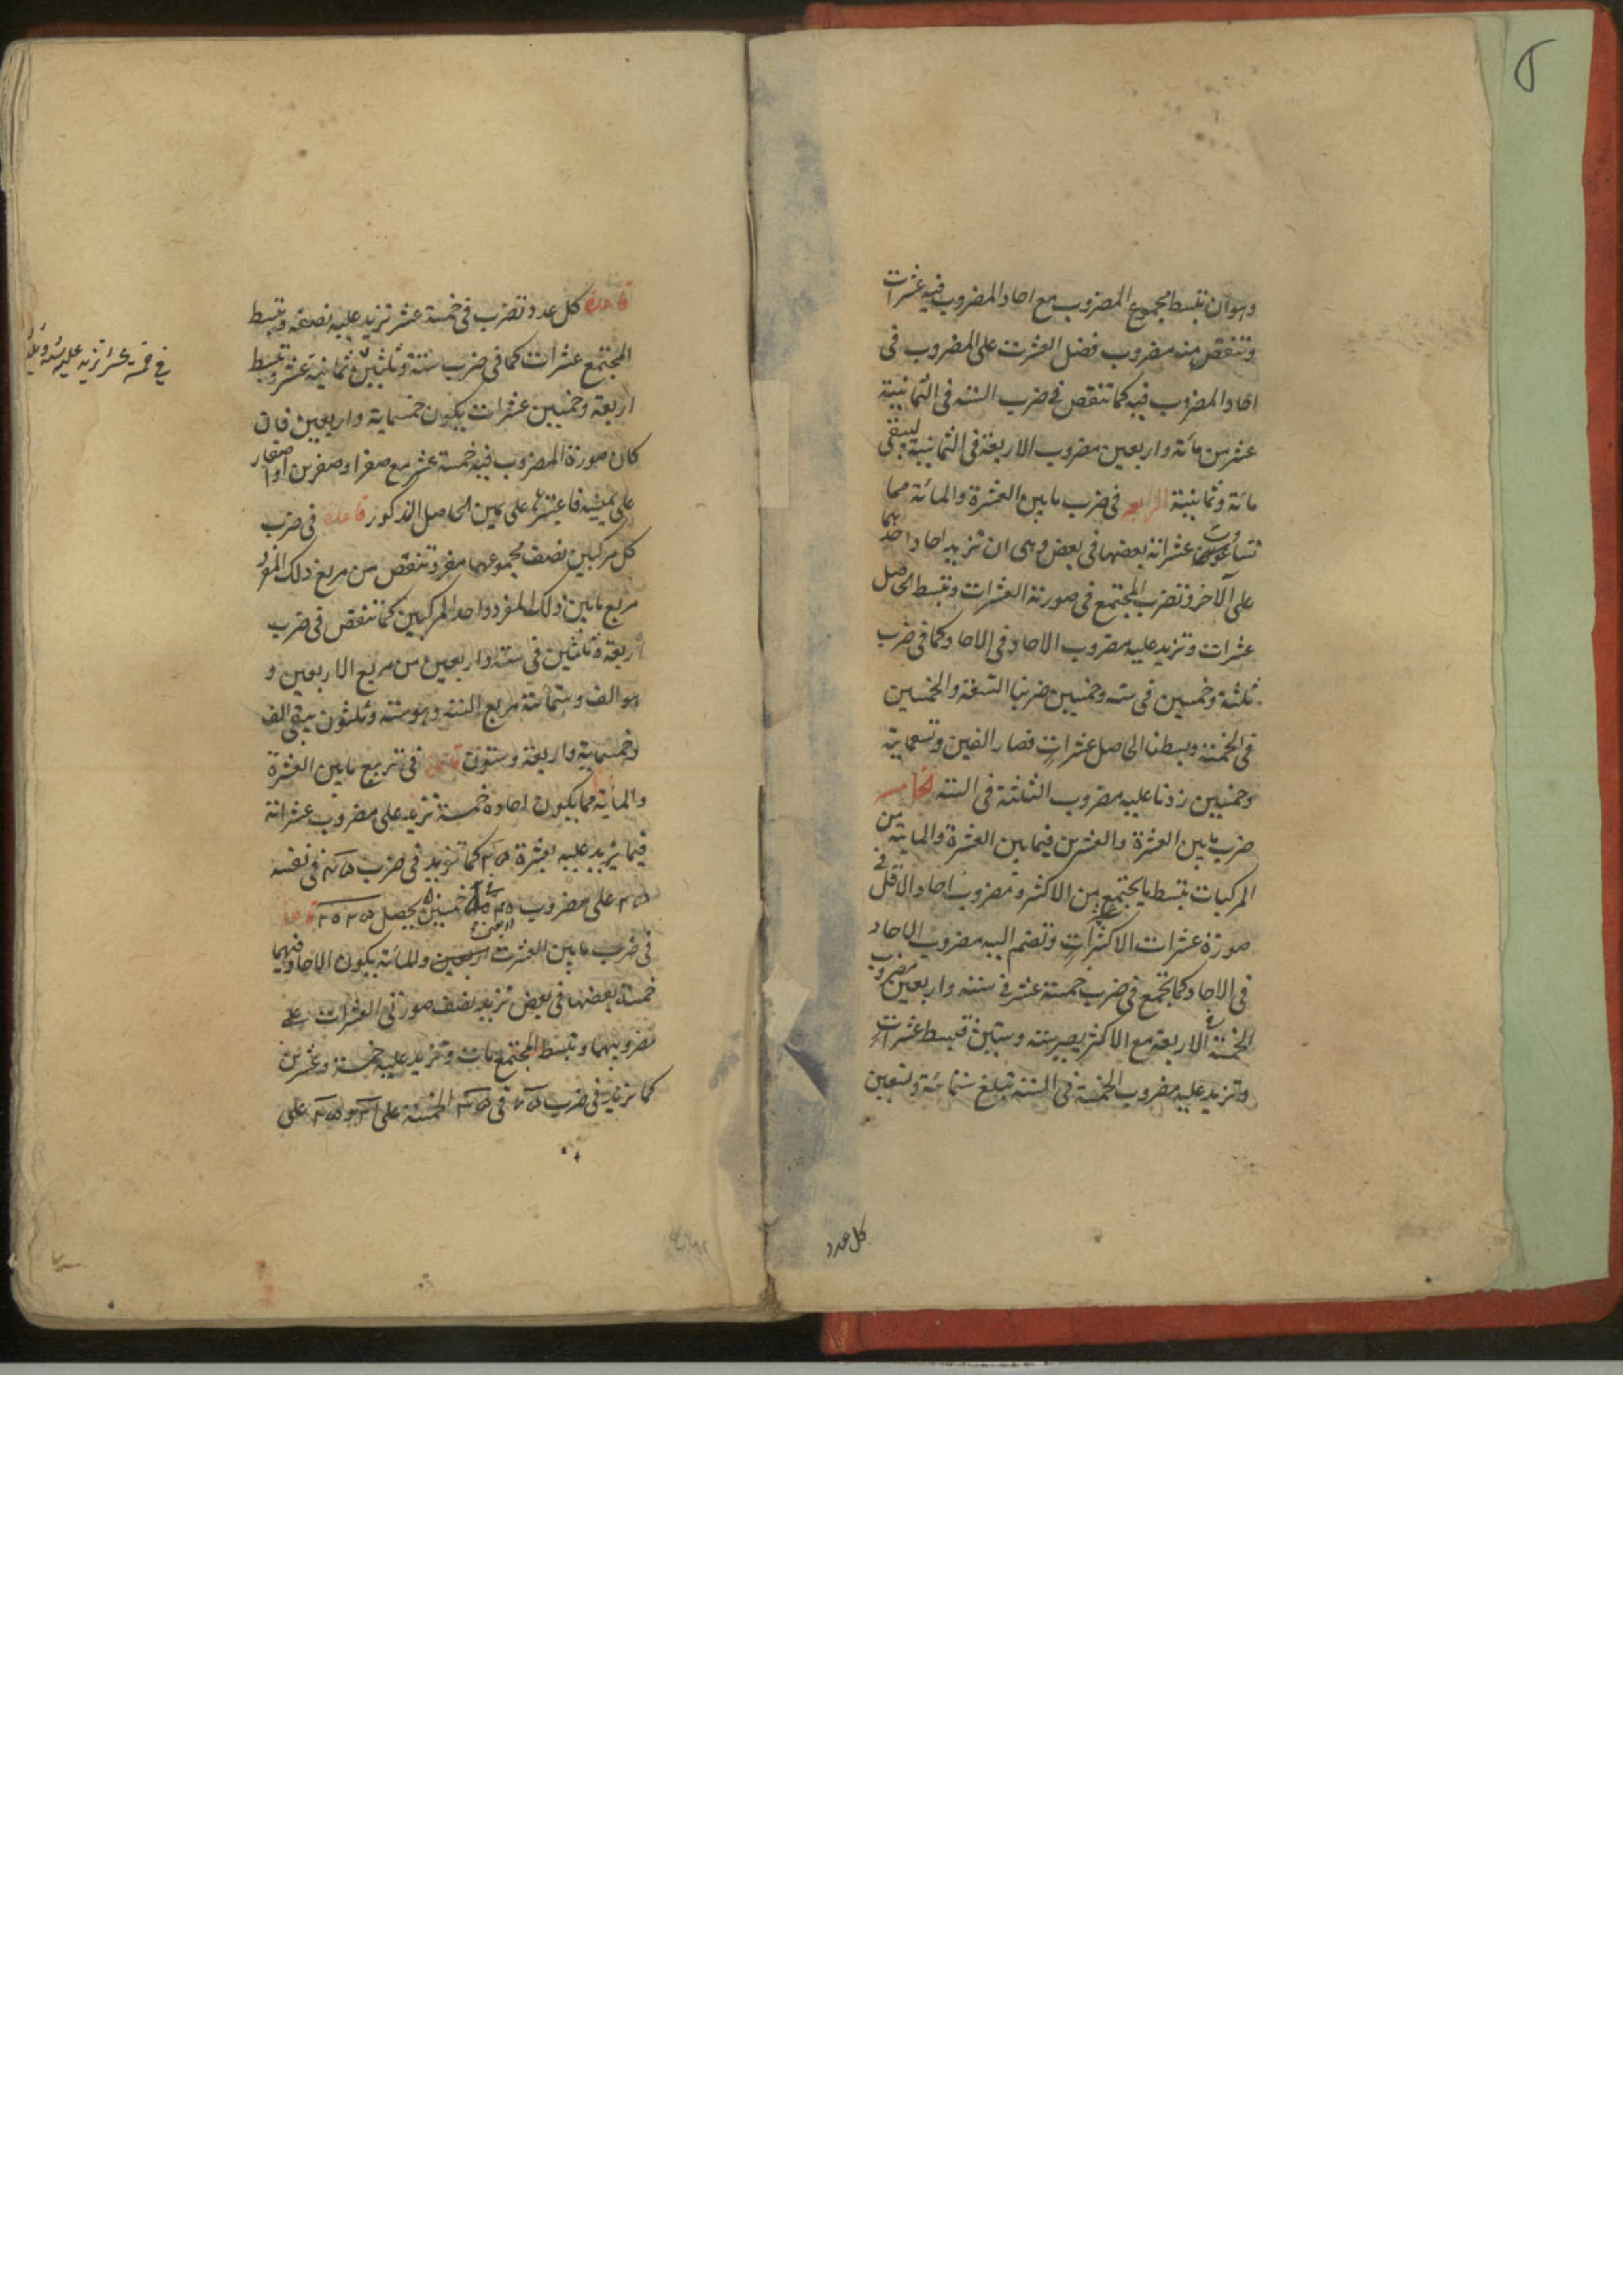 وهو ان تبسط مجموع المضروب مع احاد المضروب فيه عشرات
وتنقص منه مضروب فضل العشرة على المضروب في
احاد المضروب فيه كما تنقص في ضرب الستة في الثمانية
عشر من مائة واربعين مضروب الاربعة في الثمانية ليبقى
مائة وثمانية الرابعة في ضرب ما بين العشرة والمائة مما
تساوت عشراته بعضها في بعض وهي ان تزيد احاد احدهما
على الآخر وتضرب المجتمع في صورة العشرات وتبسط الحاصل
عشرات وتزيد عليه مضروب الاحاد في الاحاد كما في ضرب
ثلثة وخمسين في ستة وخمسين ضربنا التسعة والخمسين
في الخمسة وبسطنا الحاصل عشرات فصار الفين وتسعماية
وخمسين زدنا عليه مضروب الثلثة في الستة الخامسة
ضرب ما بين العشرة والعشرين فيما بين العشرة والمائة من
المركبات تبسط ما يجتمع من الاكثر ومضروب احاد الاقل في
صورة عشرات الاكثر عشرات وتضم اليه مضروب الاحاد
في الاحاد كما تجمع في ضرب خمسة عشر في ستة واربعين مضروب
الخمسة في الاربعة مع الاكثر يصير ستة وستين فتبسط عشرات
وتزيد عليه مضروب الخمسة في الستة تبلغ ستمائة وتسعين
كل عدد
قاعدة كل عدد تضرب في خمسة عشر تزيد عليه نصفه وتبسط
المجتمع عشرات كما في ضرب ستة وثلثين ثمانية عشر وتبسط
اربعة وخمسين عشرات يكون خمسماية واربعين فان
كان صورة المضروب فيه خمسة عشر مع صفر او صفرين او اصفار
على يمينه فاعتبرها على يمين الحاصل المذكور قاعدة في ضرب
كل مركبين نصف مجموعهما مفرد تنقص من مربع ذلك المفرد
مربع ما بين ذلك المفرد واحد المركبين كما تنقص في ضرب
اربعة وثلثين في ستة واربعين من مربع الاربعين و
هو الف وستمائة مربع الستة وهو ستة وثلثون يبقى الف
وخمسماية واربعة وستون قاعدة في تربيع ما بين العشرة
والمائة مما يكون احاده خمسة تزيد على مضروب عشراته
فيما يزيد عليه بعشرة ٢٥ كما تزيد في ضرب ٤٥ في نفسه
٢٥ على مضروب
في ضرب ما بين العشرة والمائة يكون الاحاد فيهما
خمسة بعضها في بعض تزيد نصف صورتي العشرات على
مضروبيهما وتبسط المجتمع مات وتزيد عليه خمسة وعشرين
كما تزيد في ضرب
في خمسة عشر تزيد عليه ستة وثلثين